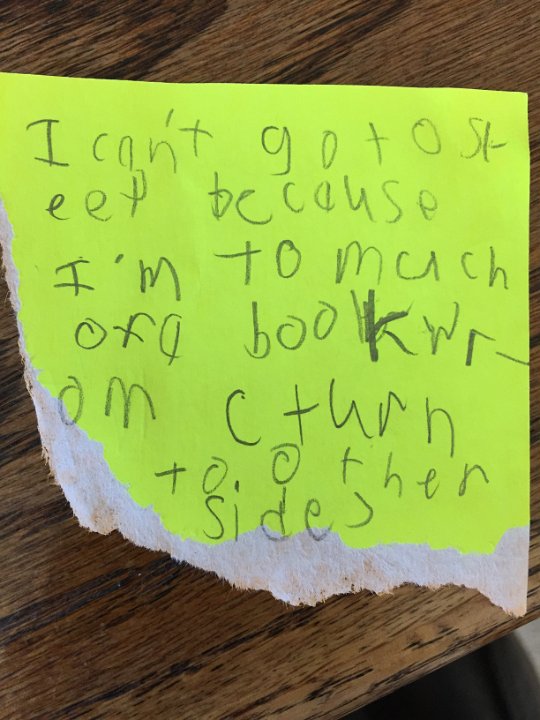 I can't go to sl
eep because
I'm to much
ofa bookwr
om (turn
to other
side)